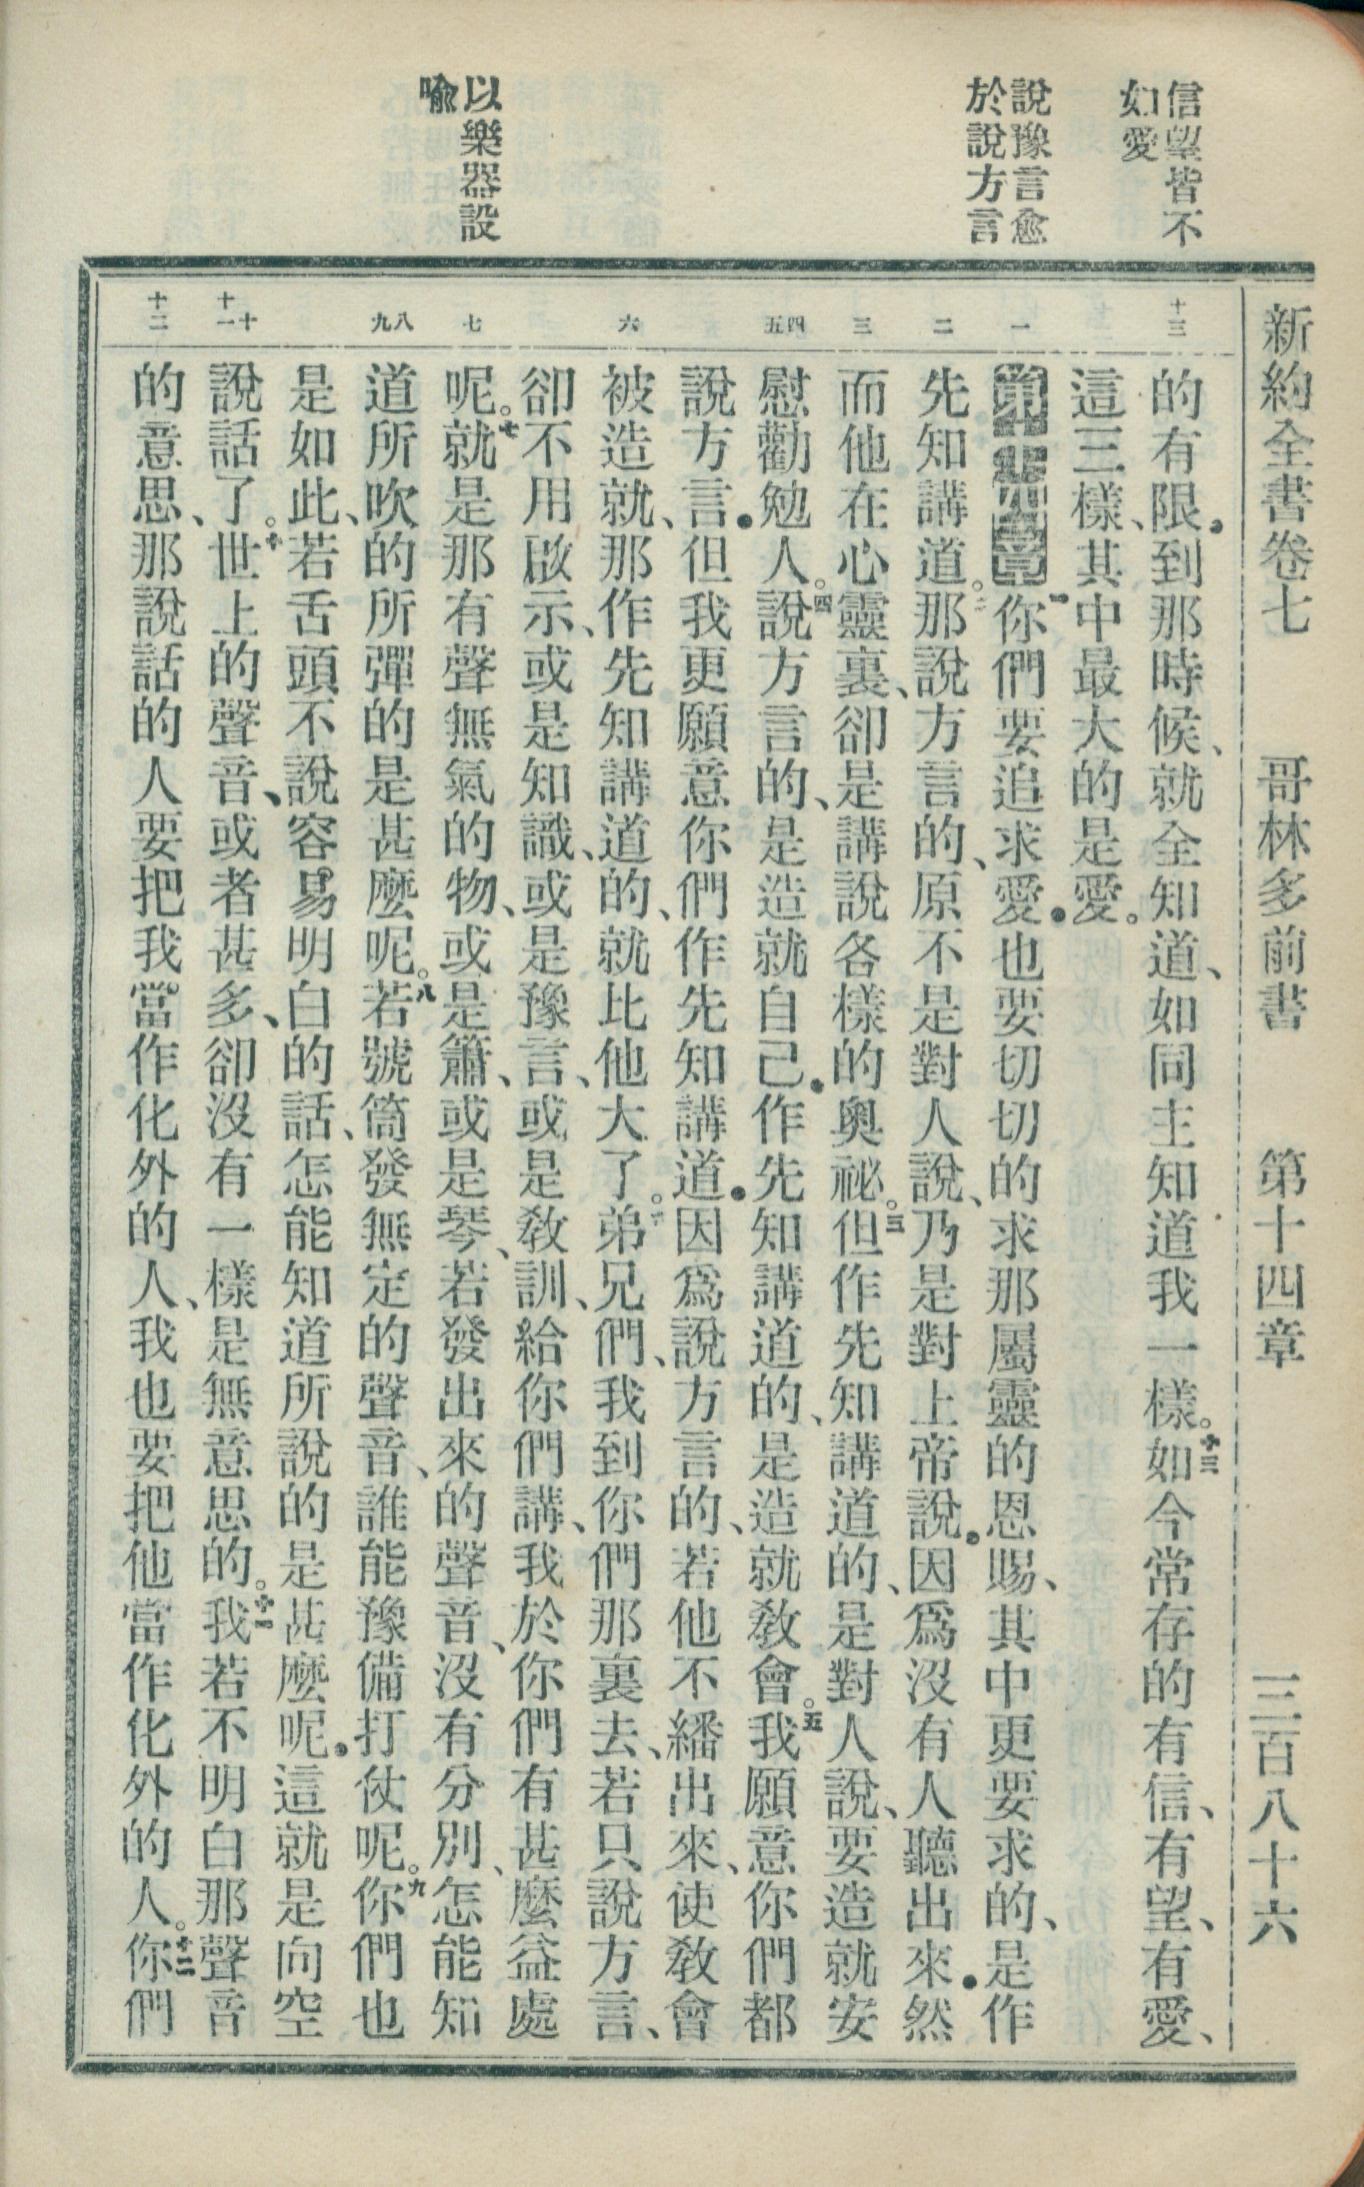 新約全書卷七 哥林多前書 第十四章 三百八十六
信望皆不
如愛
說豫言愈
於說方言
以樂器設
喩
十三
一
二
三
四
五
六
七
八
九
十
十一
十二
的有限.到那時候、就全知道、如同主知道我一樣。十三如今常存的有信、有望、有愛、
這三樣、其中最大的是愛。
第十四章 一你們要追求愛.也要切切的求那屬靈的恩賜、其中更要求的、是作
先知講道。二那說方言的、原不是對人說、乃是對上帝說.因爲沒有人聽出來.然
而他在心靈裏、卻是講說各樣的奧祕。三但作先知講道的、是對人說、要造就安
慰勸勉人。四說方言的、是造就自己.作先知講道的、是造就敎會。五我願意你們都
說方言.但我更願意你們作先知講道.因爲說方言的、若他不繙出來、使敎會
被造就、那作先知講道的、就比他大了。六弟兄們、我到你們那裏去、若只說方言、
卻不用啟示、或是知識、或是豫言、或是敎訓、給你們講、我於你們有甚麼益處
呢。七就是那有聲無氣的物、或是簫、或是琴、若發出來的聲音、沒有分別、怎能知
道所吹的所彈的是甚麼呢。八若號筒發無定的聲音、誰能豫備打仗呢。九你們也
是如此、若舌頭不說容易明白的話、怎能知道所說的是甚麼呢.這就是向空
說話了。十世上的聲音、或者甚多、卻沒有一樣是無意思的。十一我若不明白那聲音
的意思、那說話的人要把我當作化外的人、我也要把他當作化外的人。十二你們